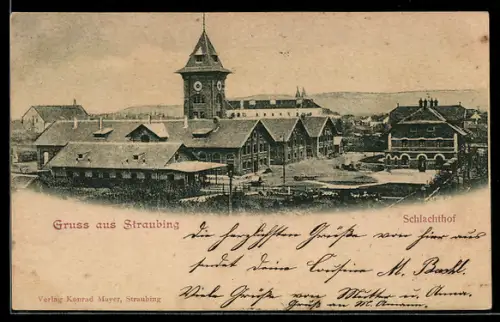 Schlachthof
Gruss aus Straubing
Die herzlichsten Grüße von hier aus
sendet Deine Cousine M. Bachl.
Viele Grüße von Mutter u. Anna.
Gruß an M. Amann.
Verlag Konrad Mayer, Straubing